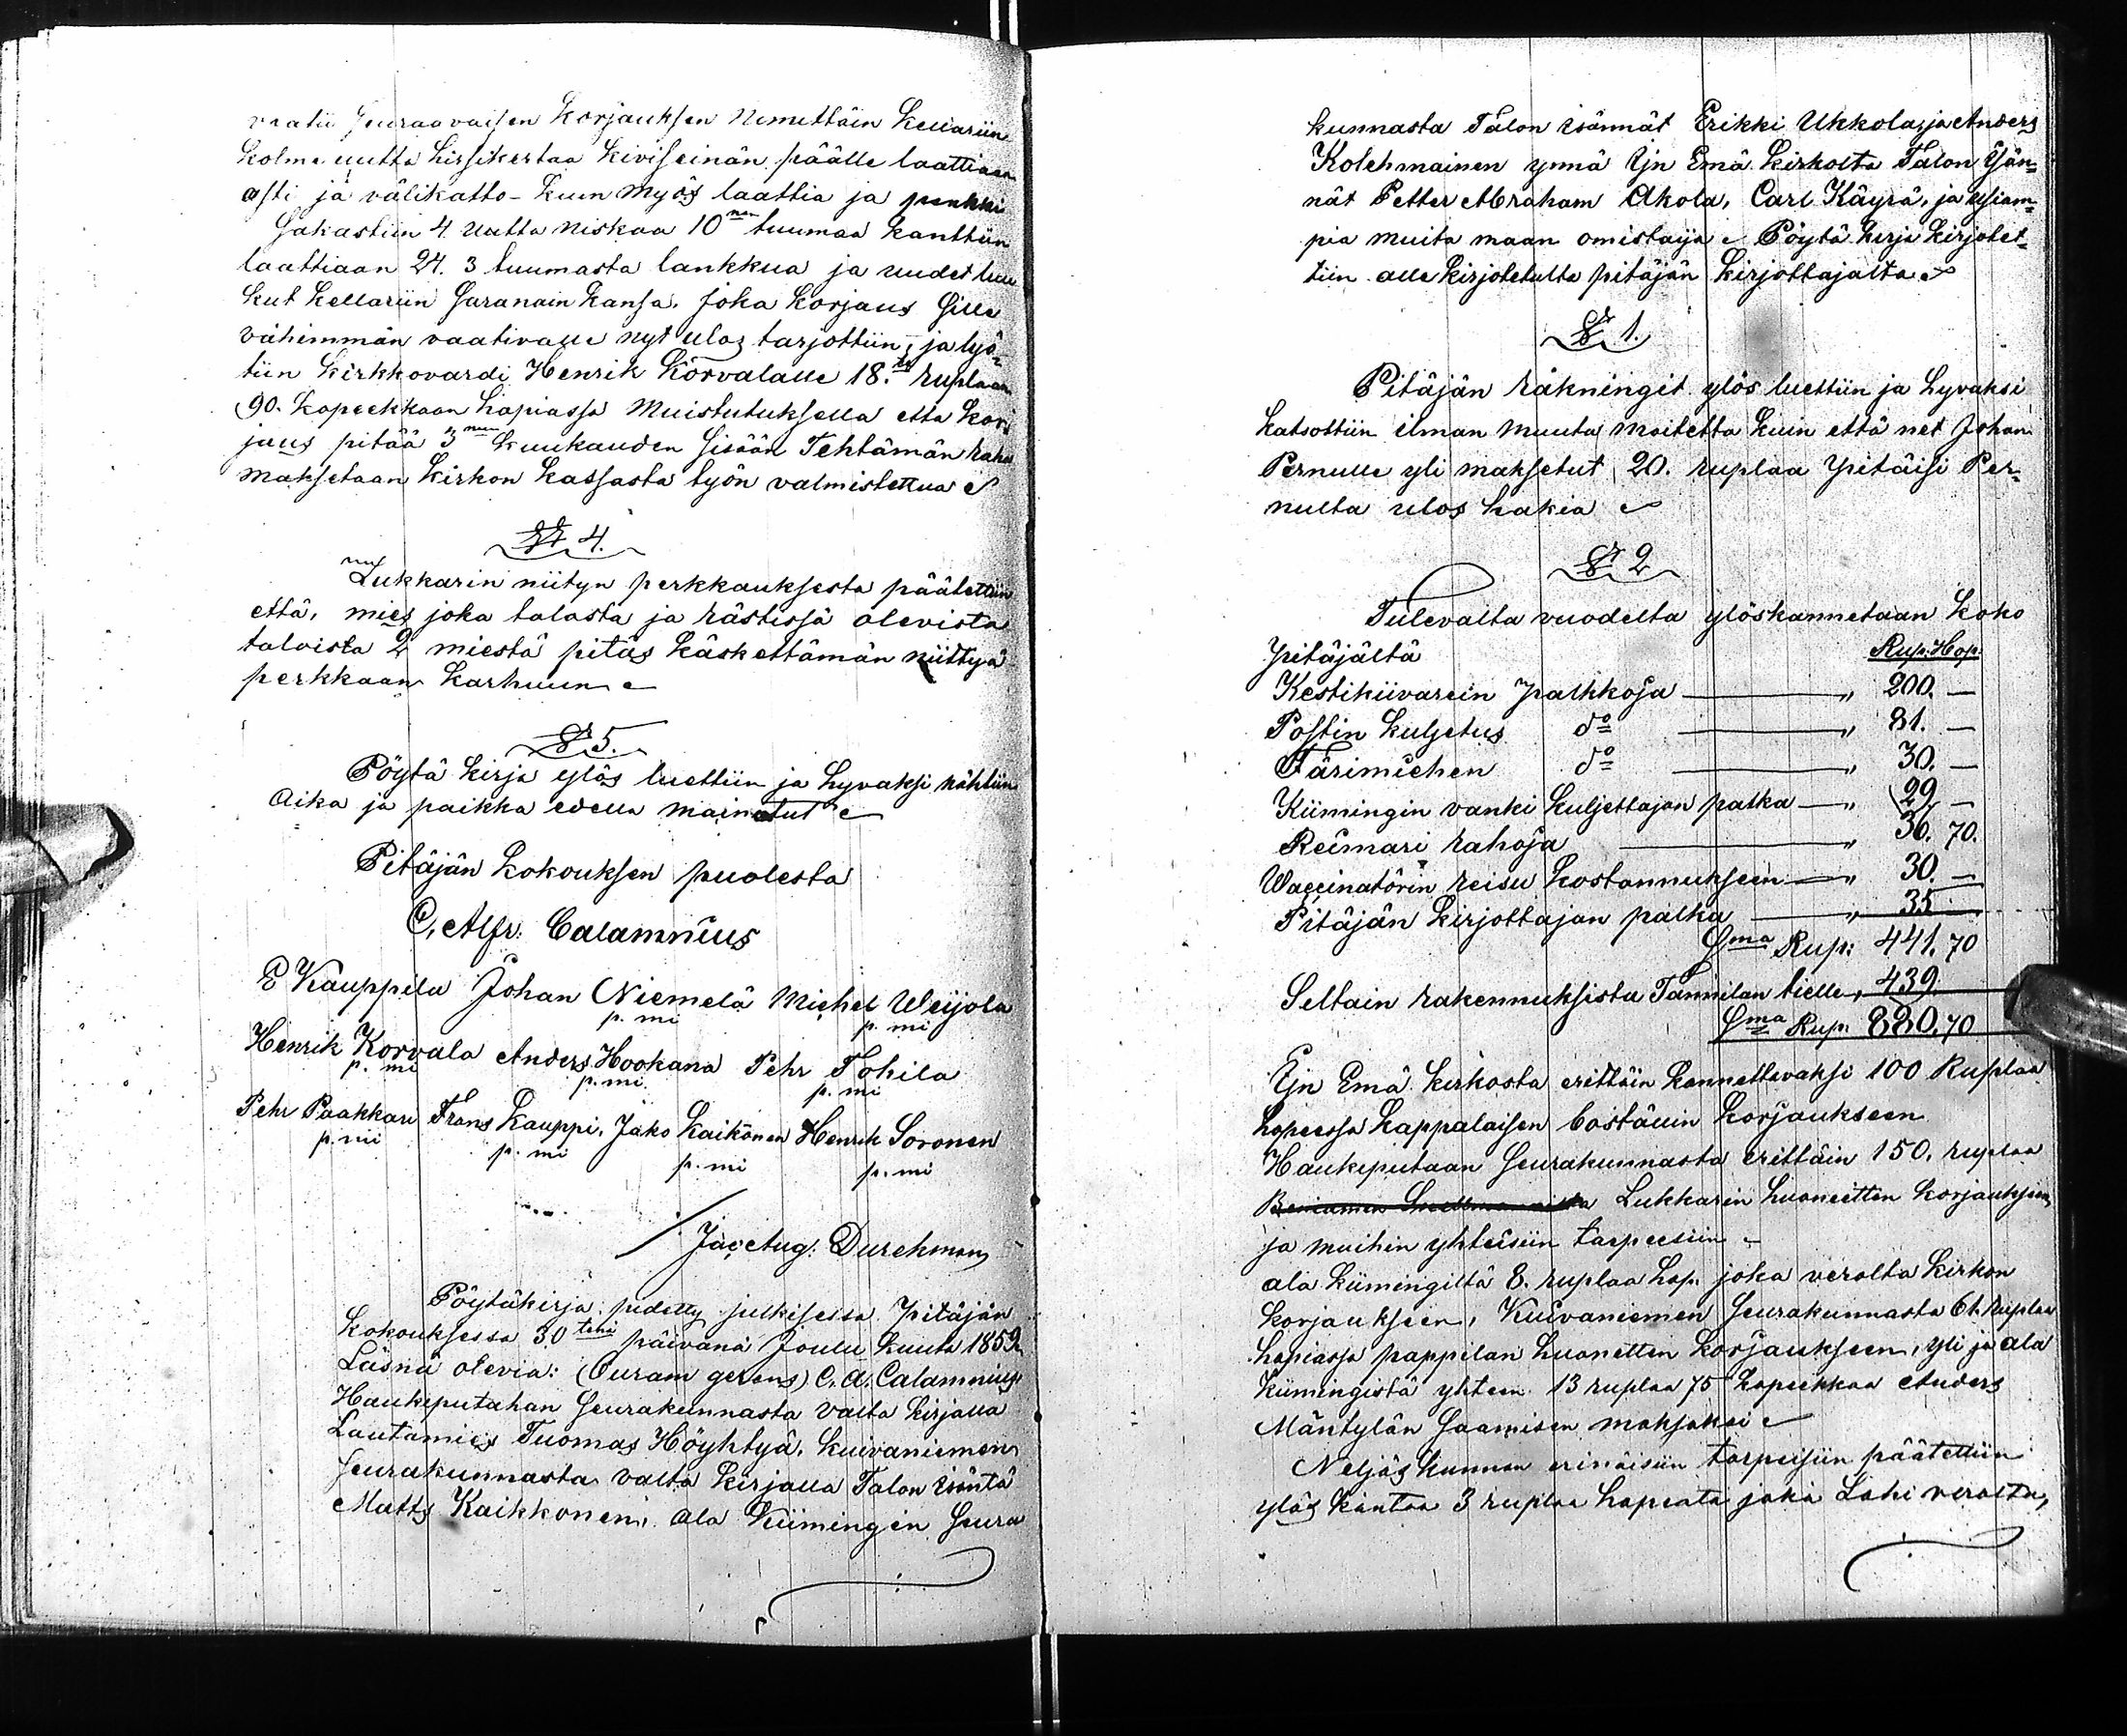 vaatii seuraavaisen Korjauksen Nemittäin Kellariin
Kolme uutta hirsikertaa kiviseinän päälle laattiaan
asti ja välikatto- kuin myös laattia ja penkki
Sakastiin 4 uutta niskaa 10 nen tuumaa kanttiin
laattiaan 24. 3 tuumasta lankkua ja uudet luu
kut kellariin Saranain kansa. Joka Korjaus Sille
vähimmän vaativalle nyt ulos tarjottiin, ja lyö-
tiin Kirkkovardi Henrik Korvalalle 18. ta ruplaan
90. Kopeekkaan hopiassa Muistutuksella että Kor-
jaus pitää 3 men Kuukauden Sisään Tehtämän raha
maksetaan Kirkon Kassasta työn valmistettua
§ 4.
Lukkarin niityn perkkauksesta päätettiin
että, mies joka talosta ja rästissä olevista
taloista 2 miestä pitää käskettämän niittyä
perkkaan Karhuun
§ 5.
Pöytä kirja ylös luettiin ja hyvaksi nähtiin
Aika ja paikka edella mainitut
Pitäjän Kokouksen puolesta
C. Alfr. Calamnius
E Kauppila Johan Niemelä Michel Weijola
p. mi p. mi
Henrik Korvala Anders Hookana Pehr Tohila
p. mi p. mi p. mi
Pehr Paakkari Frans Kauppi, Jako Kaikonen Henrik Soronen
p. mi p. mi p. mi p. mi
Jac Aug: Durchman
Pöytäkirja pidetty julkisessa Pitäjän
Kokouksessa 30 tenä päivänä Joulu Kuuta 1859
Läsnä olevia: (Curam gerens) C. A. Calamnius
Haukiputahan Seurakunnasta valta kirjalla
Lautamies Tuomas Höyhtyä, Kuivaniemen
Seurakunnasta valta kirjalla Talon isäntä
Matts Kaikkonen, ala Kiimingin Seura
kunnasta Talon isännät Erikki Ukkola, ja Anders
Kolehmainen ynnä Ijn Emä Kirkolta Talon Isän-
nät Petter Abraham Akola, Carl Käyrä, ja usiam-
pia muita maan omistaija Pöytä kirja kirjotet-
tiin alle kirjotetulta pitäjän kirjottajalta
§ 1.
Pitäjän räkningit ylös luettiin ja hyvaksi
katsottiin ilman muuta moitetta kuin että net Johan
Pernulle yli maksetut 20. ruplaa pitäisi Per-
nulta ulos hakia
§ 2
Tulevalta vuodelta ylöskannetaan Koko
pitäjältä Rup: Hop
Kestikiivarein palkkoja " 200. —
Postin kuljetus do " 81. —
Färimiehen do " 30. —
Kiimingin vanki kuljettajan palka " 29 —
Reimari rahoja " 36. 70.
Waccinatörin reisu kostannukseen " 30. —
Pitäjän kirjottajan palka " 35
Sma Rup: 441. 70
Seltain rakennuksista Tannilan tielle, 439.
Sma Rup: 880. 70
Ijn Emä Kirkosta erittäin kannettavaksi 100 Ruplaa
hopeassa Kappalaisen boställin Korjaukseen
Haukiputaan Seurakunnasta erittäin 150. ruplaa
Lukkarin huoneitten korjauksen
ja muihin yhteisiin tarpeesiin
ala Kiimingiltä 8. ruplaa hop: joka verolta Kirkon
korjaukseen, Kuivaniemen Seurakunnasta 61. Ruplaa
hopiassa pappilan huonetten korjaukseen, yli ja ala
Kiimingistä yhteen 13 ruplaa 75 Kopeekkaa Anders
Mäntylän Saamisen maksoksi
Neljäs Kunnan erinäisiin tarpeisiin päätettiin
ylös kantaa 3 ruplaa hopeata joka Lohi verolta,